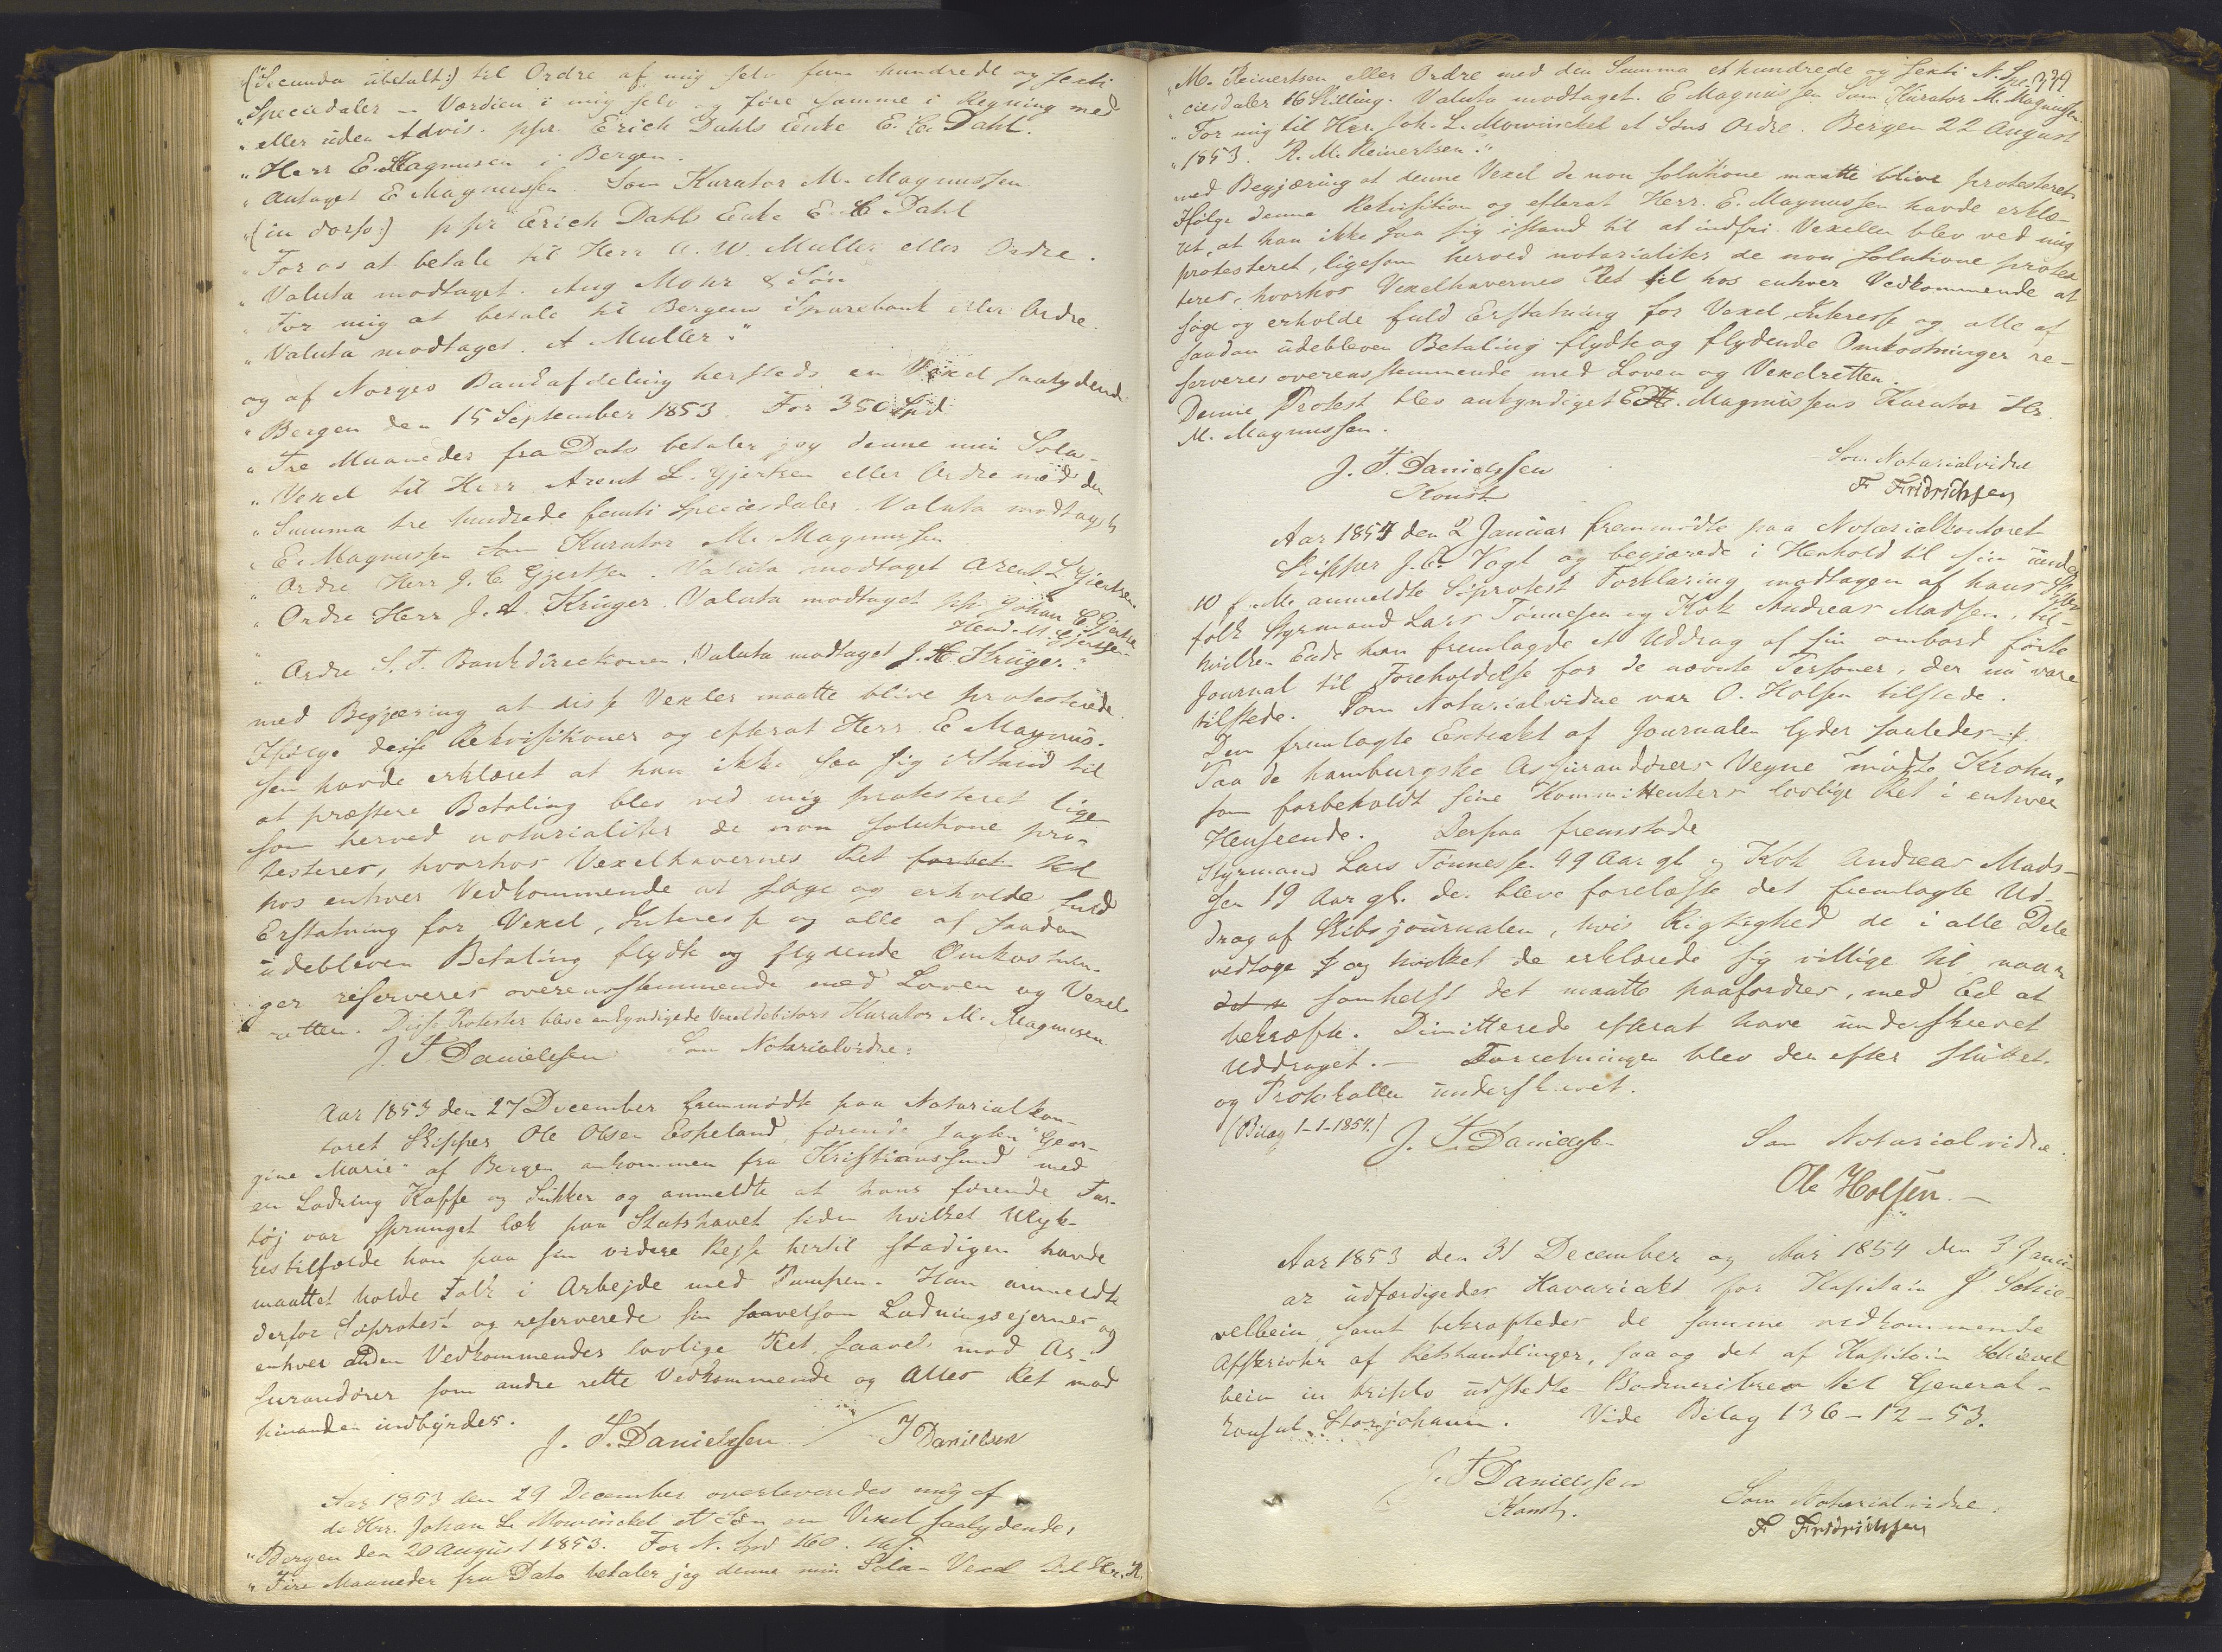 "(:Secunda ubetalt:) til Ordre af mig selv fem hundrede og sexti
"Speciedaler – Værdien i mig selv og føre samme i Regning med
"eller uden Advis. ppr. Erich Dahls Enke E. C. Dahl.
"Herr E. Magnusen i Bergen.
"Antaget E Magnussen. Som Kurator M. Magnussen
"(in dorso:) ppr Erich Dahls Enke E. C. Dahl
"For os at betale til Herr A. W. Muller eller Ordre.
"Valuta modtaget. Aug Mohr & Søn
"For mig at betale til Bergens Sparebank eller Ordre.
"Valuta modtaget. A Muller."
og af Norges Bankafdeling hersteds en Vexel saalydende
"Bergen den 15 September 1853. For 350 Spd
"Tre Maaneder fra Dato betaler jeg denne min Sola-
"Vexel til Herr Arent L. Gjertsen eller Ordre med den
"Summa tre hundrede femti Speciesdaler. Valuta modtaget
"E. Magnussen Som Kurator M. Magnussen
"Ordre Herr J. C. Gjertsen. Valuta modtaget Arent L Gjertsen
"Ordre Herr J. A. Krüger. Valuta modtaget pp. Johan C Gjertsen
Hend. M. Gjertsen
"Ordre S. T. Bankdirectionen. Valuta modtaget J. A Krüger."
med Begjæring at disse Vexler maatte blive protesterede.
Ifølge disse Rekvisitioner og efterat Herr E Magnus-
sen havde erklæret at han ikke saa sig istand til
at præstere Betaling blev ved mig protesteret lige
som herved notarialiter de non solutione pro-
testeres, hvorhos Vexelhavernes Ret til
hos enhver Vedkommende at søge og erholde fuld
Erstatning for Vexel, Interesse og alle af saadan
udebleven Betaling flydte og flydende Omkostnin-
ger reserveres overensstemmende med Loven og Vexel-
retten. Disse Protester bleve ankyndigede Vexeldebitors Kurator M. Magnusen.
J. S. Danielsen Som Notarialvidne:
Aar 1853 den 27 December fremmødte paa Notarialkon-
toret Skipper Ole Olsen Espeland, førende Jagten "Geor-
gine Marie" af Bergen ankommen fra Kristianssund med
en Ladning Kaffe og Sukker og anmeldte at hans førende Far-
tøj var sprunget læk paa Statshavet siden hvilket Ulyk-
kestilfælde han paa sin videre Rejse hertil stadigen havde
maattet holde Folk i Arbejde med Pumpen. Han anmeldte
derfor Søprotest og reserverede sin saavelsom Ladningsejernes og
enhver anden Vedkommendes lovlige Ret saavel mod As-
surandører som andre rette Vedkommende og Alles Ret mod
hinanden indbyrdes.
J. S. Danielssen / J Danielsen
Aar 1853 den 29 December overleveredes mig af
de Hrr. Johan L. Mowinckel et Søn en Vexel saalydende,
"Bergen den 20 August 1853. For N. Spd 160. 16 s.
"Fire Maaneder fra Dato betaler jeg denne min Sola-Vexel til Hr. R.
339
"M. Reinertsen eller Ordre med den Summa et hundrede og sexti N. Spe-
"ciesdaler 16 Skilling. Valuta modtaget. E Magnussen Som Kurator M. Magnussen
"For mig til Herr Joh. L. Mowinckel et Søns Ordre. Bergen 22 August
"1853. R. M. Reinertsen."
med Begjæring at denne Vexel de non solutione maatte blive protesteret.
Ifølge denne Rekvisition og efterat Herr. E. Magnussen havde erklæ-
ret, at han ikke saa sig istand til at indfri Vexellen blev ved mig
protesteret, ligesom herved notarialiter de non solutione protes
teres, hvorhos Vexelhavernes Ret til hos enhver Vedkommende at
søge og erholde fuld Erstatning for Vexel, Interesse og alle af
saadan udebleven Betaling flydte og flydende Omkostninger re-
serveres overensstemmende med Loven og Vexelretten.
Denne Protest blev ankyndiget E. Magnussens Kurator Hr.
M. Magnussen.
J. S. Danielssen
Konst.
Som Notarialvidne
F Fridrichsen
Aar 1854 den 2 Januar fremmødte paa Notarialkontoret
Skipper J. C. Vogt og begjærede i Henhold til sin under
10 f. M. anmeldte Søprotest Forklaring modtagen af hans Skibs
folk Styrmand Lars Tønnesen og Kok Andreas Madsen, til
hvilken Ende han fremlagde et Uddrag af sin ombord førte
Journal til Foreholdelse for de nævnte Personer, der nu vare
tilstede. Som Notarialvidne var O. Holsen tilstede.
Den fremlagte Extrakt af Journalen lyder saaledes
Paa de hamburgske Assurandørers Vegne mødte Krohn,
som forbeholdt sine Kommittenters lovlige Ret i enhver
Henseende. Derpaa fremstode
Styrmand Lars Tønnessen 49 Aar gl. og Kok Andreas Mads-
sen 19 Aar gl. der bleve forelæste det fremlagte Ud-
drag af Skibsjournalen, hvis Rigtighed de i alle Dele
vedtoge og hvilket de erklærede sig villige til naar
somhelst det maatte paafordres, med Ed at
bekræfte. Dimitterede efterat have underskrevet
Uddraget. – Forretningen blev derefter sluttet
og Protokollen underskrevet.
(Bilag 1-1-1854.)
J. S. Danielssen
Som Notarialvidne.
Ole Holsen. –
Aar 1853 den 31 December og Aar 1854 den 3 Janu-
ar udfærdigedes Havariakt for Kapitain J. Schie-
velbein, samt bekræftedes de samme vedkommende
Afskrivter af Retshandlinger, saa og det af Kapitain Schievel
bein in triplo udstedte Bodmeribrev til General-
konsul Storjohann. Vide Bilag 136-12-53.
J. S Danielssen
Konst.
Som Notarialvidne.
F Fridrichsen